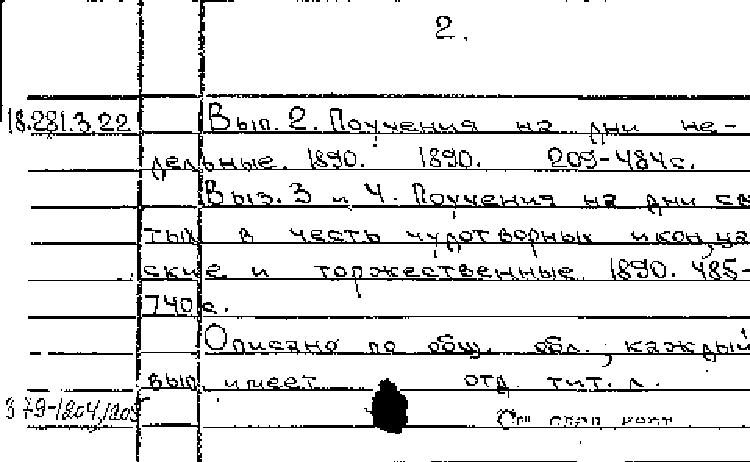 2.
18.281.3.22 Вып. 2. Поучения на дни не-
дельные. 1890. 1890. 209-484с.
Вып. 3 и 4. Поучения на дни свя
тых в честь чудотворных икон, ца
ские и торжественные 1890. 485-
740с.
Описано по общ. обл., каждый
вып. имеет отд. тит. л.
См